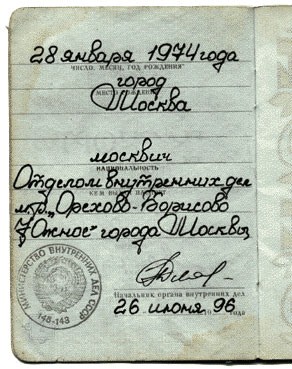 28 января 1974 года
ЧИСЛО, МЕСЯЦ, ГОД РОЖДЕНИЯ
город
МЕСТО РОЖДЕНИЯ
Москва
москвич
НАЦИОНАЛЬНОСТЬ
КЕМ ВЫДАН ПАСПОРТ
Отделом внутренних дел
м.р. „Орехово-Борисово
Южное" города Москвы
МИНИСТЕРСТВО ВНУТРЕННИХ ДЕЛ СССР
148-143
Начальник органа внутренних дел
26 июня 1996 года